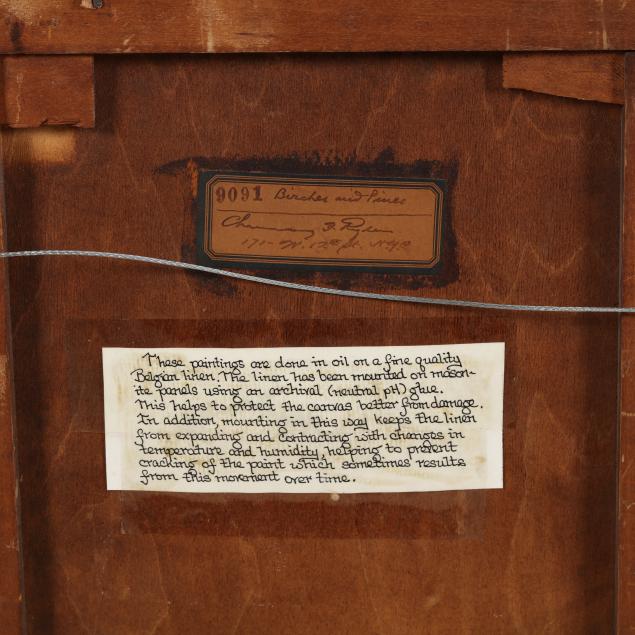 9091 Birches and Pines
Chauncey F. Ryder
171 - W. 12th St. NYC
These paintings are done in oil on a fine quality
Belgian linen. The linen has been mounted on mason-
ite panels using an archival (neutral pH) glue.
This helps to protect the canvas better from damage.
In addition, mounting in this way keeps the linen
from expanding and contracting with changes in
temperature and humidity, helping to prevent
cracking of the paint which sometimes results
from this movement over time.